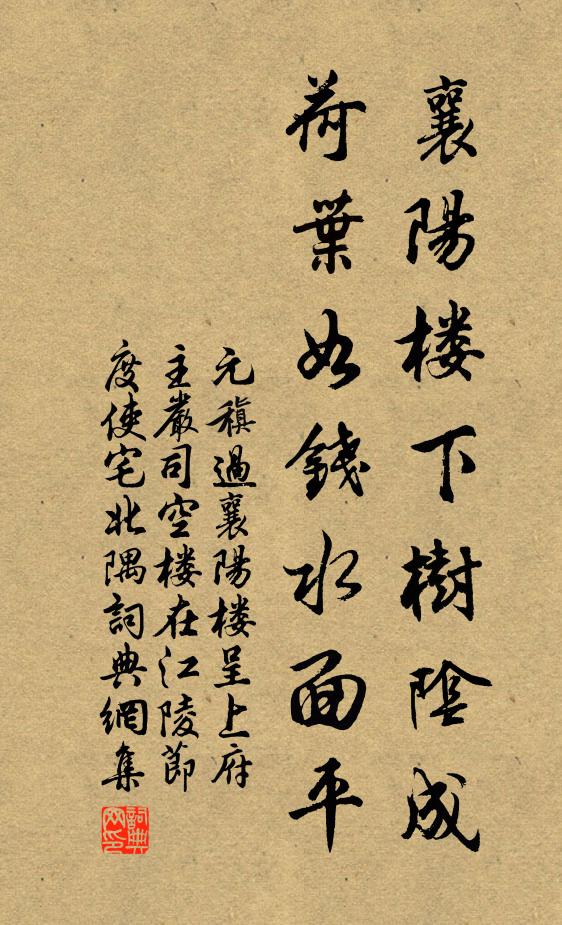 襄陽楼下樹陰成
荷葉如錢水面平
元稹過襄陽楼呈上府
主嚴司空楼在江陵節
度使宅北隅詞典網集
詞典
网印